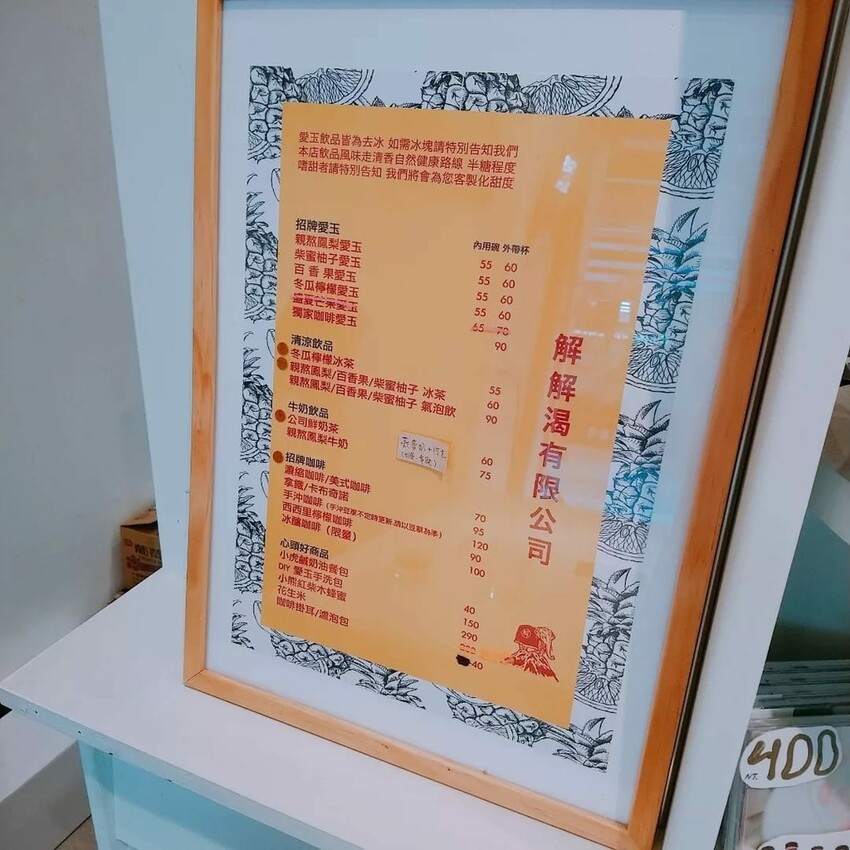 愛玉飲品皆為去冰 如需冰塊請特別告知我們
本店飲品風味走清香自然健康路線 半糖程度
嗜甜者請特別告知 我們將會為您客製化甜度
招牌愛玉
內用碗 外帶杯
親熬鳳梨愛玉 55 60
柴蜜柚子愛玉 55 60
百香果愛玉 55 60
冬瓜檸檬愛玉 55 60
盛夏芒果愛玉 65 70
獨家咖啡愛玉 90
清涼飲品
冬瓜檸檬冰茶 55
親熬鳳梨/百香果/柴蜜柚子 冰茶 60
親熬鳳梨/百香果/柴蜜柚子 氣泡飲 90
牛奶飲品
公司鮮奶茶 60
親熬鳳梨牛奶 75
招牌咖啡
濃縮咖啡/美式咖啡 70
拿鐵/卡布奇諾 95
手沖咖啡 (手沖豆單不定時更新,請以豆單為準) 120
西西里檸檬咖啡 90
冰釀咖啡 (限量) 100
心頭好商品
小虎鹹奶油餐包 40
DIY 愛玉手洗包 150
小熊紅柴木蜂蜜 290
花生米
咖啡掛耳/濾泡包 40
解解渴有限公司
NT. 400